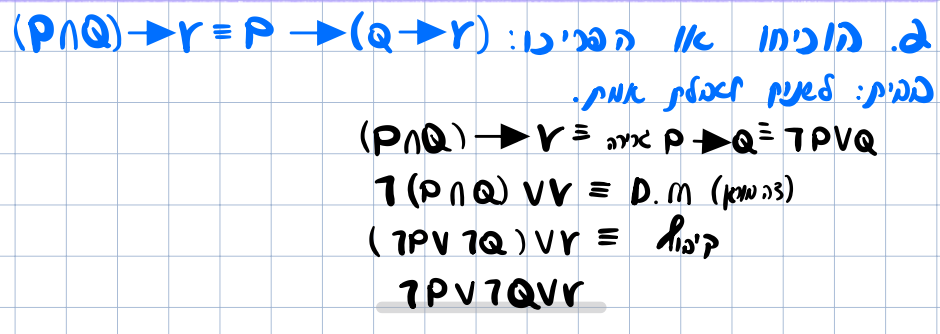 2. הוכיחו או הפריכו: (P∩Q)→r ≡ P→(Q→r)
בבית: לשנים לאבלת אמת.
(P∩Q)→r ≡ גרירה P→Q ≡ ¬P∨Q
¬(P∩Q)∨r ≡ D.M (דה מורגן)
(¬P∨¬Q)∨r ≡ קיבוץ
¬P∨¬Q∨r